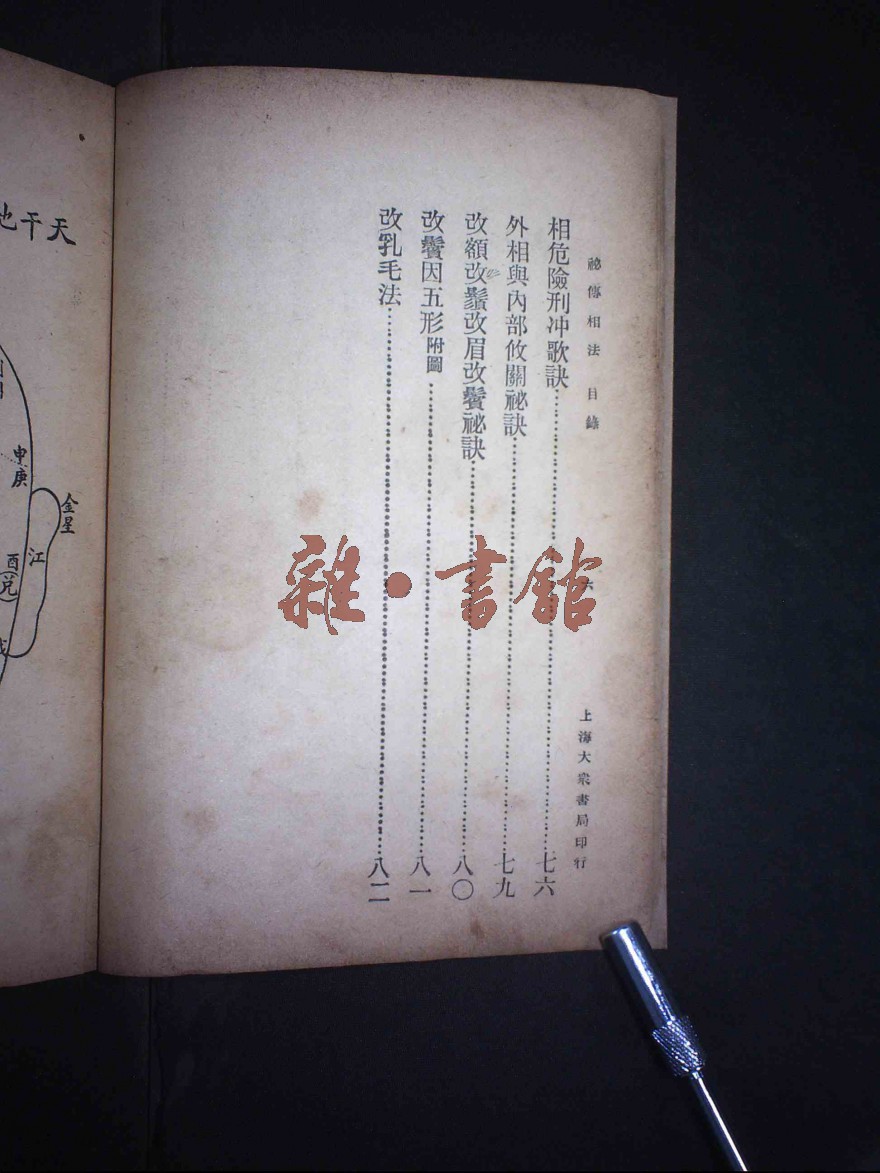 祕傳相法 目錄
六
上海大衆書局印行
相危險刑冲歌訣……七六
外相與內部攸關祕訣……七九
改額改鬚改眉改鬢祕訣……八〇
改鬢因五形附圖……八一
改乳毛法……八二
雜·書館
天干地
申庚
金星
江
酉(兌)